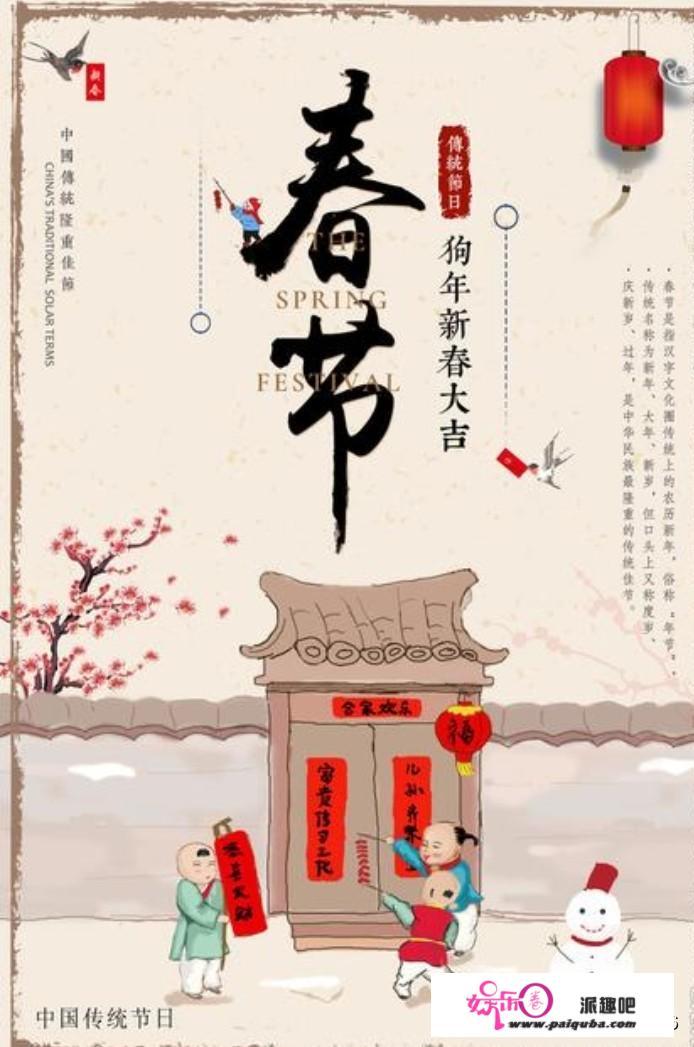 新春
中國傳統隆重佳節
CHINA'S TRADITIONAL SOLAR TERMS
春节
THE
SPRING
FESTIVAL
傳統節日
狗年新春大吉
·春节是指汉字文化圈传统上的农历新年，俗称“年节”，
·传统名称为新年、大年、新岁，但口头上又称度岁、
·庆新岁、过年，是中华民族最隆重的传统佳节。
合家欢乐
福
富贵
儿孙
恭喜发财
中国传统节日
娱乐圈
派趣吧
www.paiquba.com